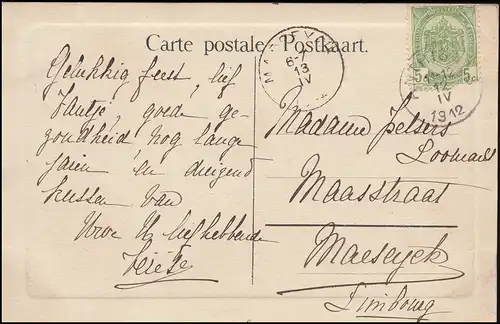 Carte postale - Postkaart.
Gelukkig feest, lief
Tantje, goede ge-
zondheid nog lange
jaren en duizend
kussen van
Uwe U liefhebbende
MAESEYCK
6-7
13
IV
5 c
5 c
12
IV
1912
Madame
Maasstraat
Maeseyck
Limbourg